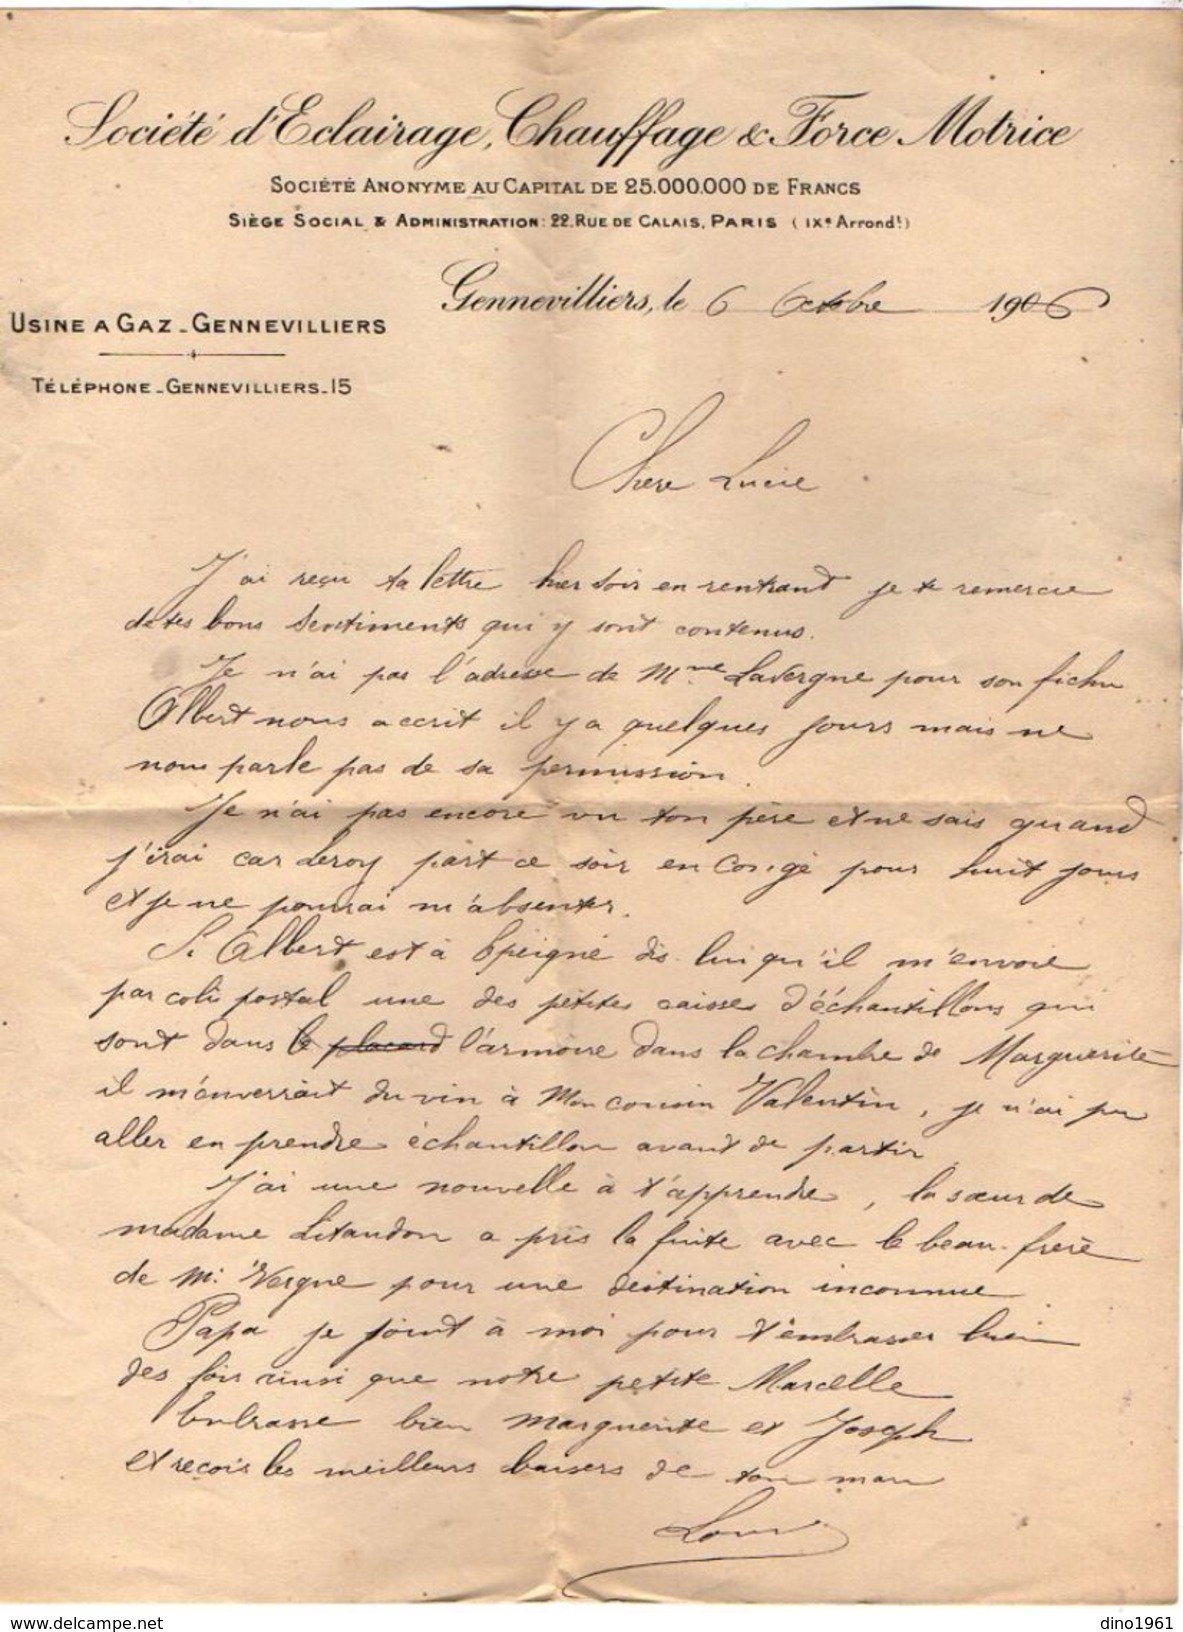 Société d'Eclairage, Chauffage & Force Motrice
Société Anonyme au Capital de 25.000.000 de Francs
Siège Social & Administration: 22, Rue de Calais, Paris (IXe Arrondt)
Gennevilliers, le 6 Octobre 1906
Usine a Gaz - Gennevilliers
Téléphone - Gennevilliers - 15
Chere Lucie
J'ai reçu ta lettre hier soir en rentrant je te remercie
de tes bons sentiments qui y sont contenus.
Je n'ai pas l'adresse de Mme Lavergne pour son fichu
Albert nous a ecrit il y a quelques jours mais ne
nous parle pas de sa permission.
Je n'ai pas encore vu ton père et ne sais quand
j'irai car Leroy part ce soir en congé pour huit jours
et je ne pourrai m'absenter.
Si Albert est à Epeigné dis-lui qu'il m'envoie
par coli postal une des petites caisses d'échantillons qui
sont dans le placard l'armoire dans la chambre de Marguerite
il m'enverrait du vin à mon cousin Valentin, je n'ai pu
aller en prendre échantillon avant de partir
J'ai une nouvelle à t'apprendre, la sœur de
madame Litaudon a pris la fuite avec le beau-frère
de Mr Vergne pour une destination inconnue
Papa se joint à moi pour t'embrasser bien
des fois ainsi que notre petite Marcelle
Embrasse bien Marguerite et Joseph
et reçois les meilleurs baisers de ton mari
Louis
https://www.delcampe.net
dino1961